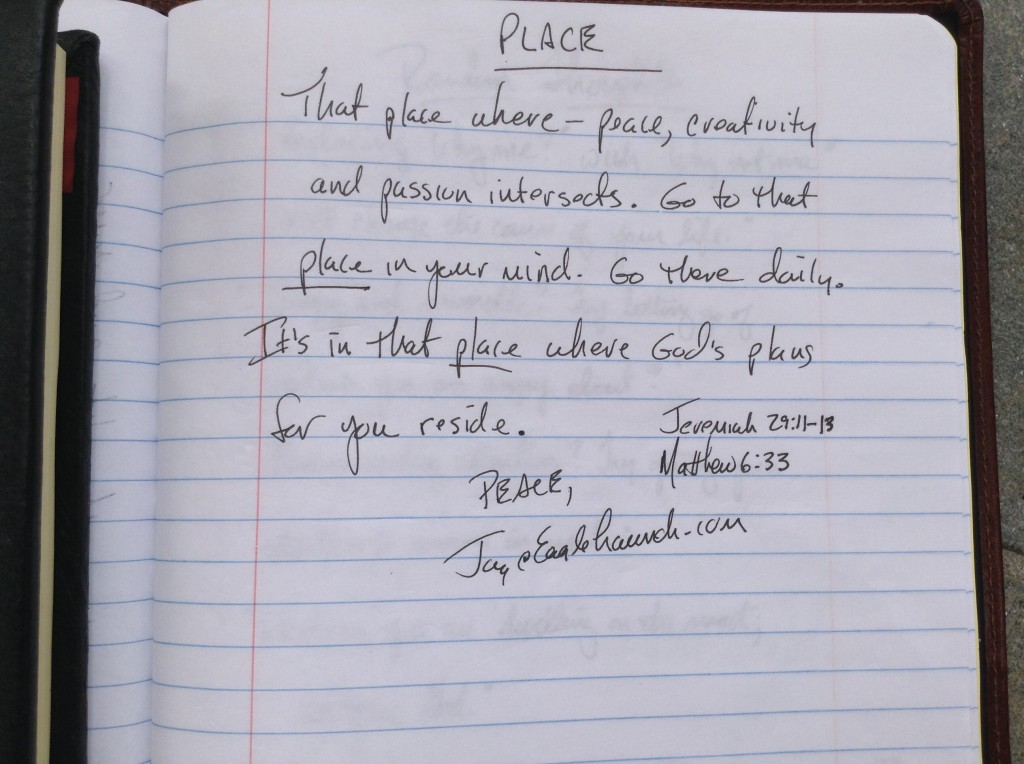 PLACE
That place where - peace, creativity
and passion intersects. Go to that
place in your mind. Go there daily.
It's in that place where God's plans
for you reside.
Jeremiah 29:11-13
Matthew 6:33
PEACE,